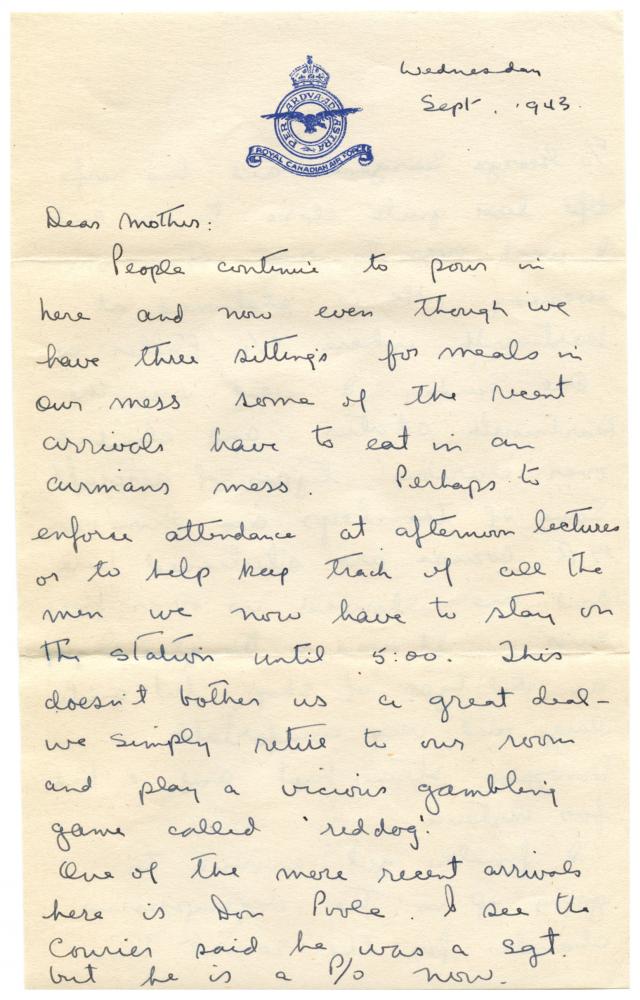 Wednesday
Sept. 1943.
PER ARDVA AD ASTRA
ROYAL CANADIAN AIR FORCE
Dear Mother:
People continue to pour in
here and now even though we
have three sittings for meals in
our mess some of the recent
arrivals have to eat in an
airmans mess. Perhaps to
enforce attendance at afternoon lectures
or to help keep track of all the
men we now have to stay on
the station until 5:00. This
doesn't bother us a great deal -
we simply retire to our room
and play a vicious gambling
game called 'red dog'.
One of the more recent arrivals
here is Don Poole. I see the
Courier said he was a sgt.
but he is a P/o now.